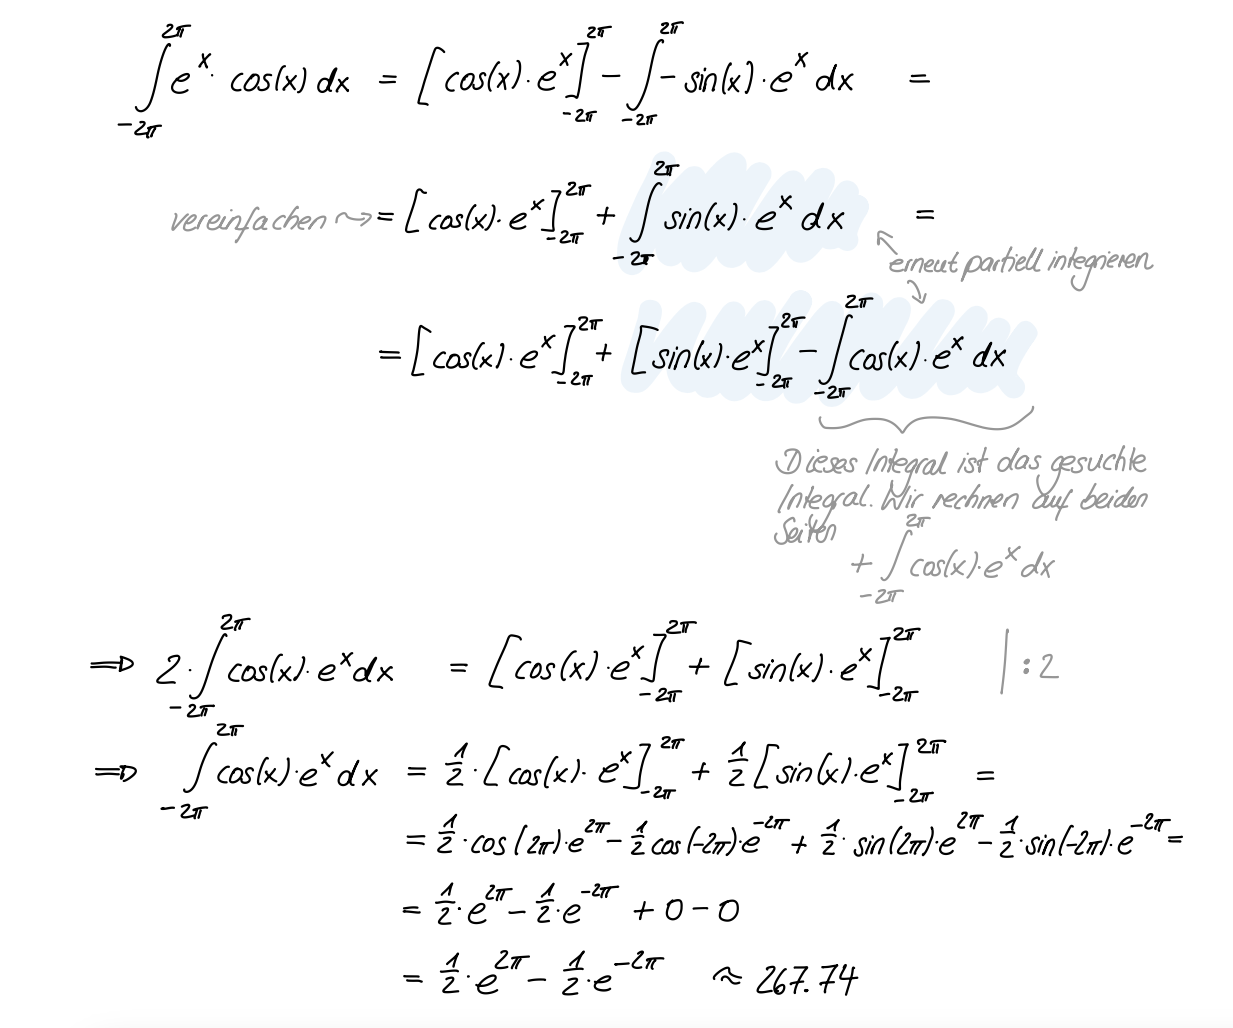 ∫_{-2π}^{2π} e^x · cos(x) dx = [cos(x) · e^x]_{-2π}^{2π} − ∫_{-2π}^{2π} − sin(x) · e^x dx =
vereinfachen ⤳ = [cos(x) · e^x]_{-2π}^{2π} + ∫_{-2π}^{2π} sin(x) · e^x dx =
erneut partiell integrieren
= [cos(x) · e^x]_{-2π}^{2π} + [sin(x) · e^x]_{-2π}^{2π} − ∫_{-2π}^{2π} cos(x) · e^x dx
Dieses Integral ist das gesuchte
Integral. Wir rechnen auf beiden
Seiten
+ ∫_{-2π}^{2π} cos(x) · e^x dx
⇒ 2 · ∫_{-2π}^{2π} cos(x) · e^x dx = [cos(x) · e^x]_{-2π}^{2π} + [sin(x) · e^x]_{-2π}^{2π} | : 2
⇒ ∫_{-2π}^{2π} cos(x) · e^x dx = 1/2 · [cos(x) · e^x]_{-2π}^{2π} + 1/2 [sin(x) · e^x]_{-2π}^{2π} =
= 1/2 · cos(2π) · e^{2π} − 1/2 cos(-2π) · e^{-2π} + 1/2 · sin(2π) · e^{2π} − 1/2 · sin(-2π) · e^{-2π} =
= 1/2 · e^{2π} − 1/2 · e^{-2π} + 0 − 0
= 1/2 · e^{2π} − 1/2 · e^{-2π} ≈ 267.74